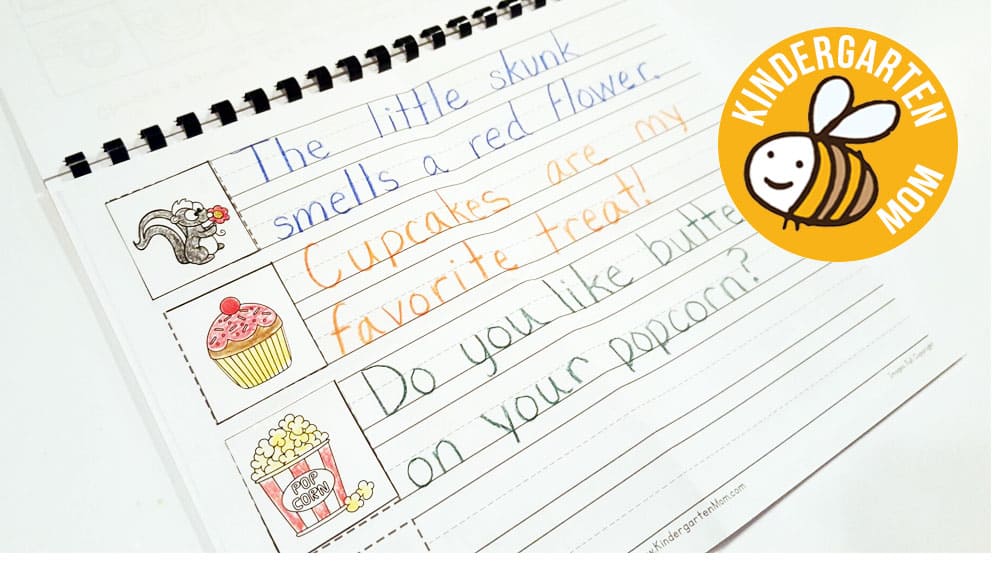 The little skunk
smells a red flower.
Cupcakes are my
favorite treat!
Do you like butte
on your popcorn?
POP
CORN
KINDERGARTEN
MOM
w.KindergartenMom.com